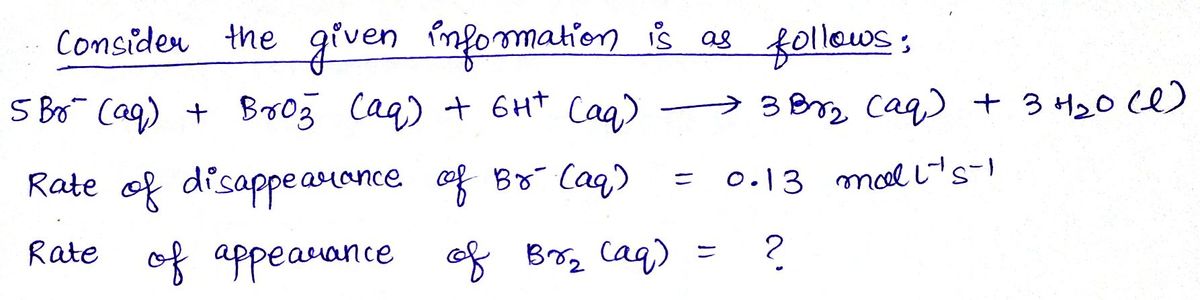 Consider the given information is as follows:
5 Br⁻ (aq) + BrO₃⁻ (aq) + 6H⁺ (aq) ⟶ 3 Br₂ (aq) + 3 H₂O (l)
Rate of disappearance of Br⁻ (aq) = 0.13 mol L⁻¹ s⁻¹
Rate of appearance of Br₂ (aq) = ?